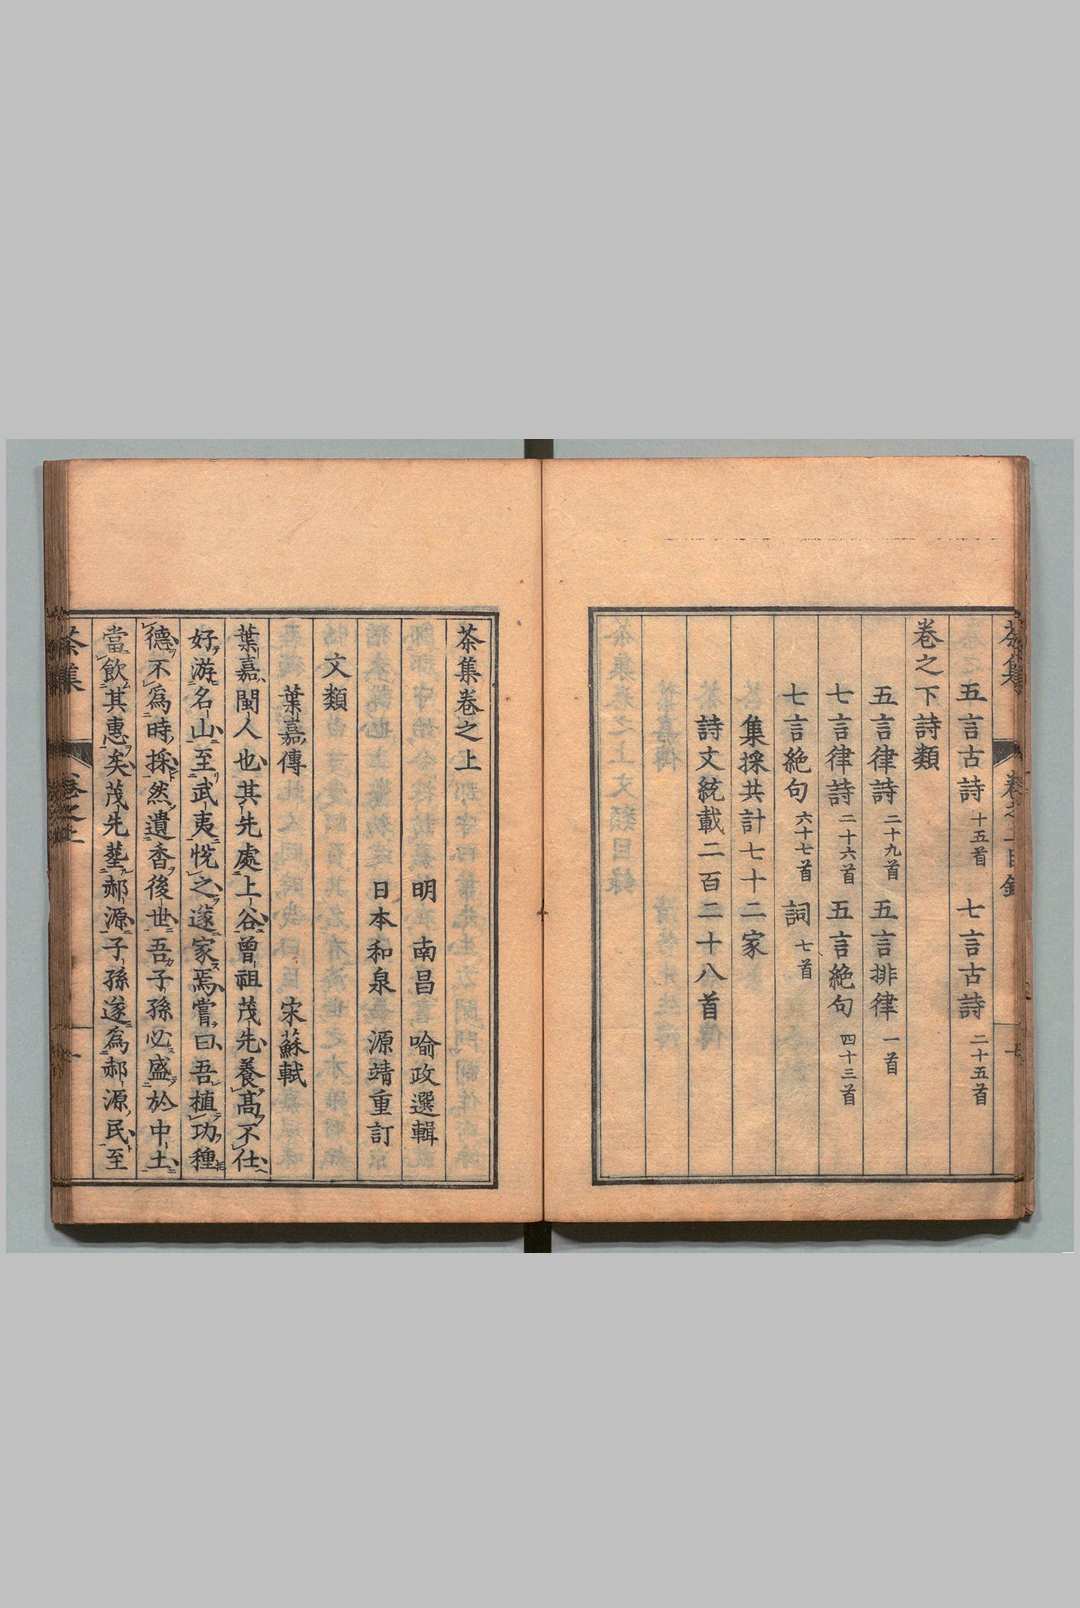 五言古詩 十五首 七言古詩 二十五首
卷之下詩類
五言律詩 二十九首 五言排律 一首
七言律詩 二十六首 五言絶句 四十三首
七言絶句 六十七首 詞 七首
集採共計七十二家
詩文統載二百二十八首
茶集卷之上
明 南昌 喻政選輯
日本和泉 源靖重訂
文類
葉嘉傳 宋蘇軾
葉嘉閩人也其先處上谷曾祖茂先養髙不仕
好游名山至武夷悅之遂家焉嘗曰吾植功種
德不為時採然遺香後世吾子孫必盛於中土
當飲其惠矣茂先塟郝源子孫遂為郝源民至
茶集